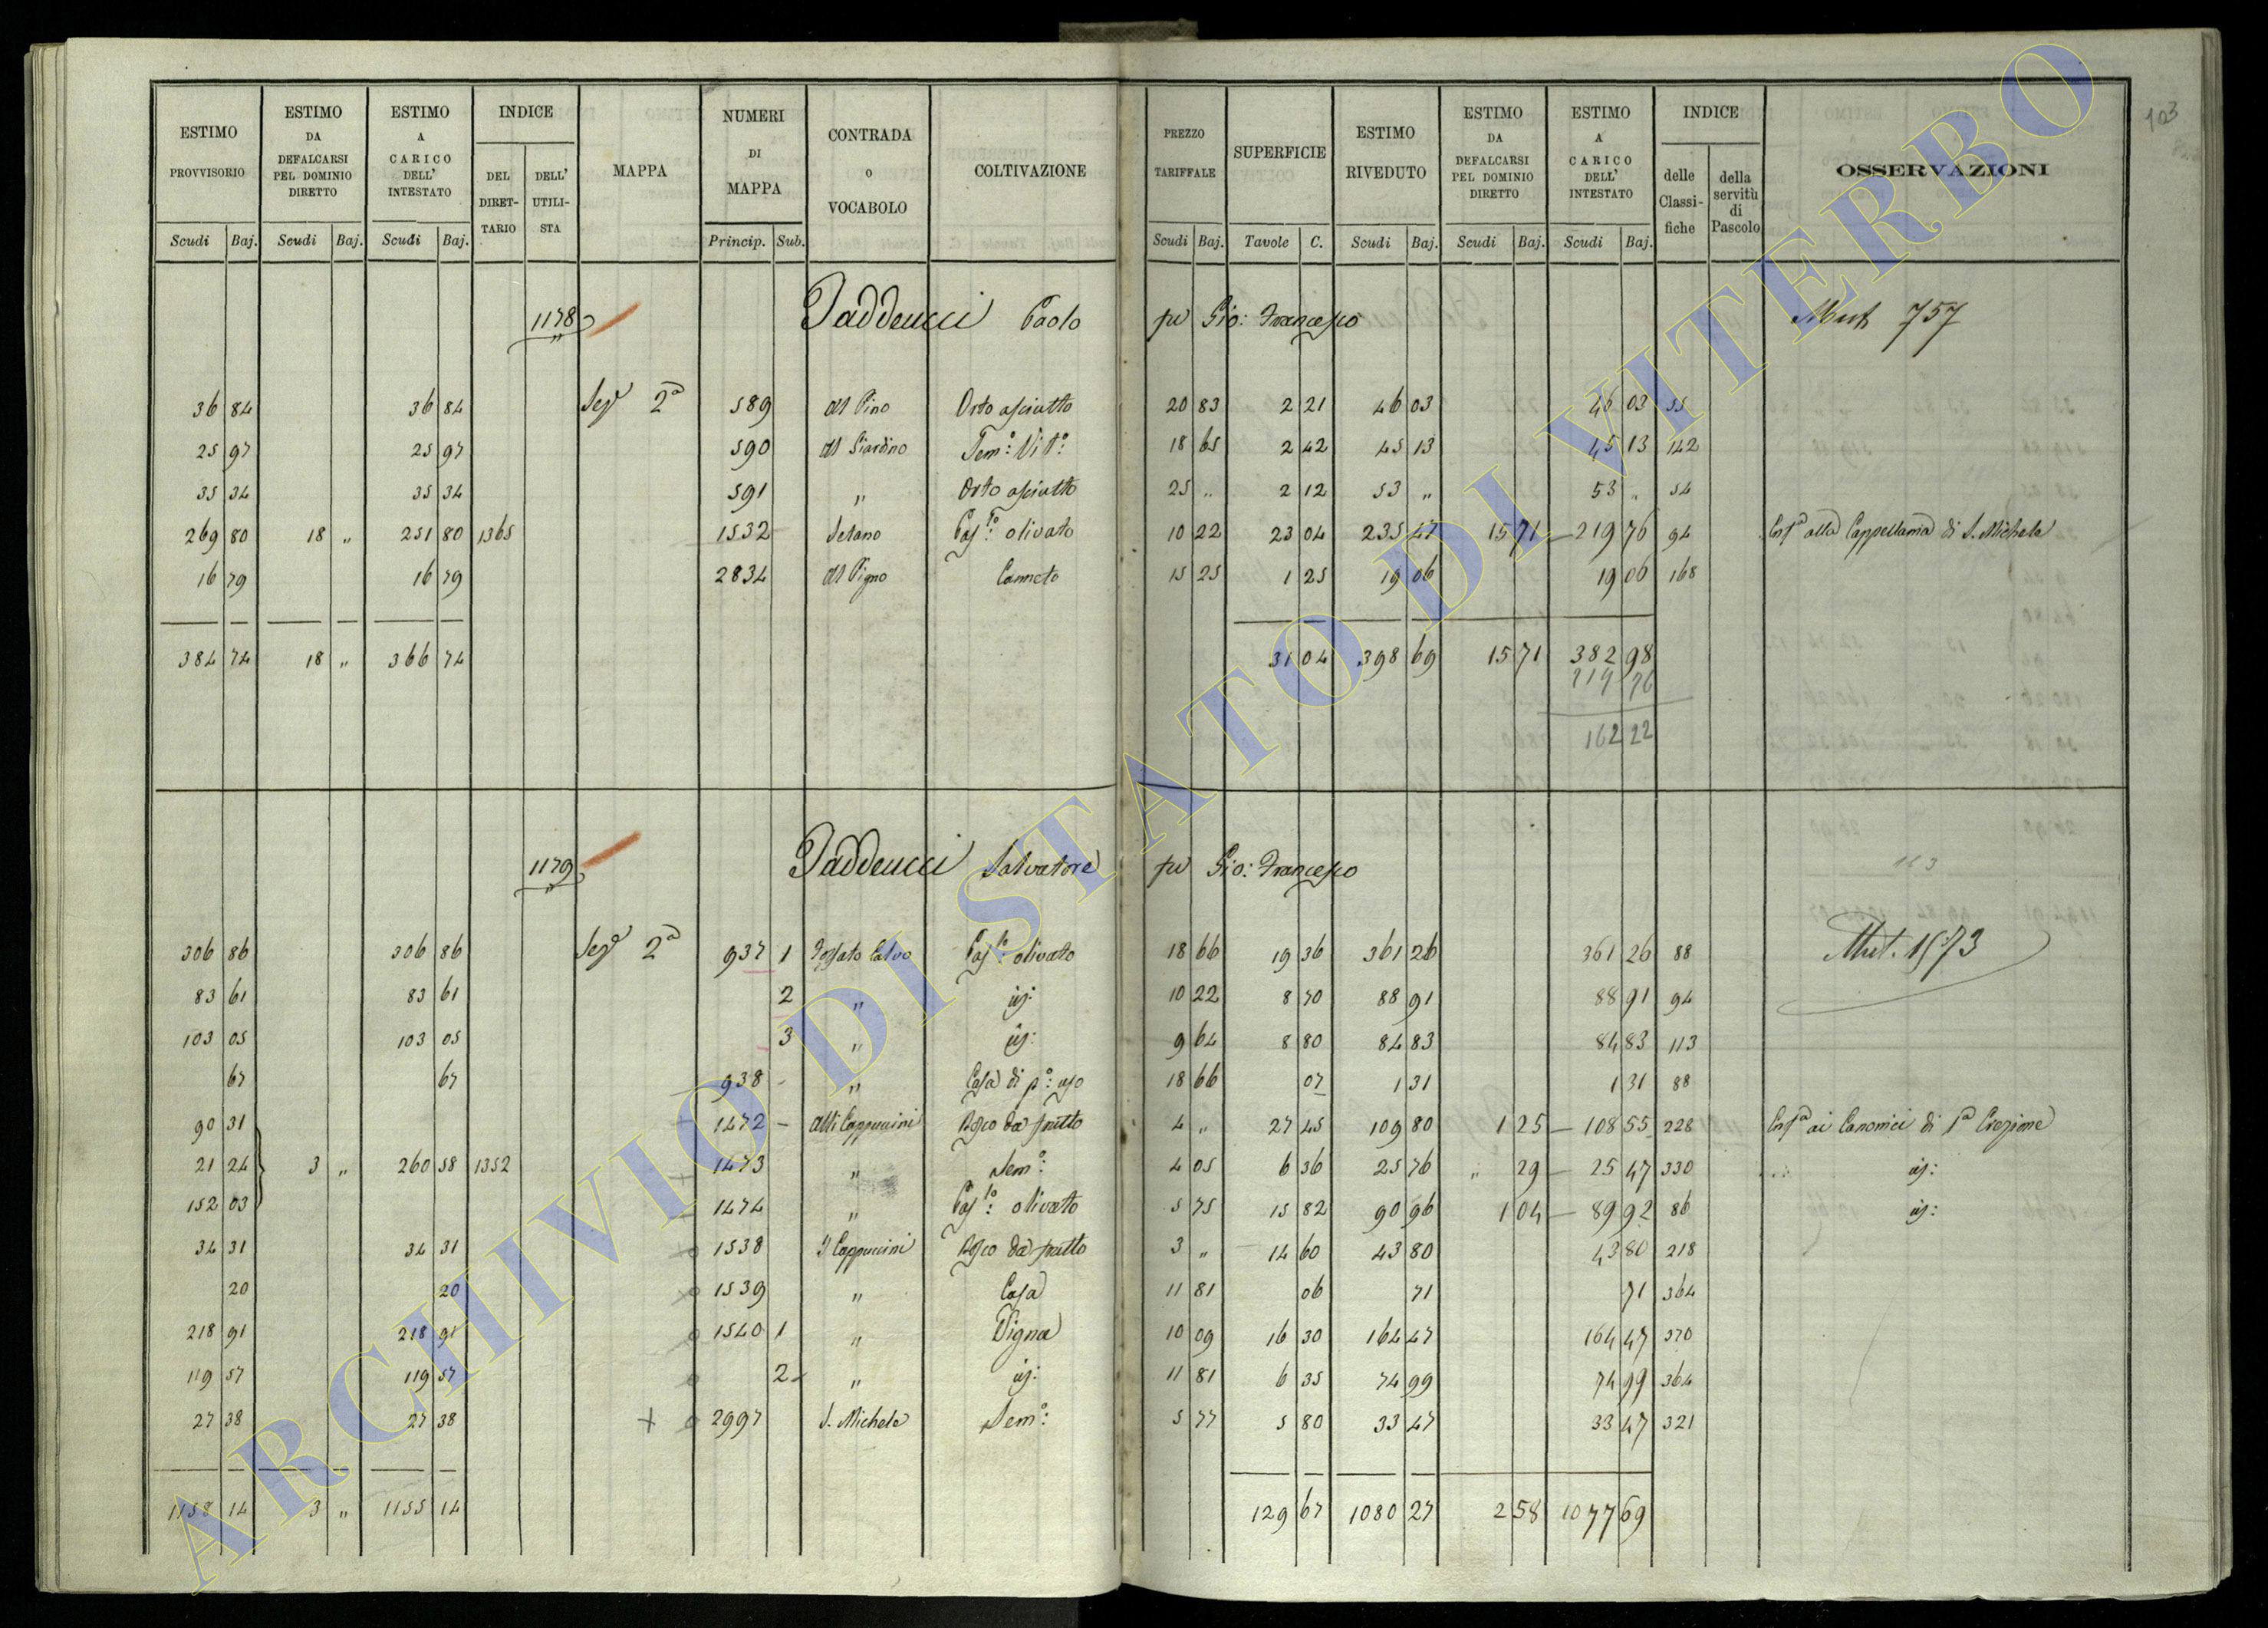 103
ESTIMO PROVVISORIO | ESTIMO DA DEFALCARSI PEL DOMINIO DIRETTO | ESTIMO A CARICO DELL' INTESTATO | INDICE DEL DIRETTARIO | DELL' UTILISTA | MAPPA | NUMERI DI MAPPA | CONTRADA O VOCABOLO | COLTIVAZIONE | PREZZO TARIFFALE | SUPERFICIE | ESTIMO RIVEDUTO | ESTIMO DA DEFALCARSI PEL DOMINIO DIRETTO | ESTIMO A CARICO DELL' INTESTATO | INDICE delle Classifiche | della servitù di Pascolo | OSSERVAZIONI
Scudi Baj. | Scudi Baj. | Scudi Baj. | Princip. Sub. | Scudi Baj. | Tavole C. | Scudi Baj. | Scudi Baj. | Scudi Baj.
1178 Taddeucci Paolo fu Gio: Francesco Mut 757
36 84 | 36 84 | Sez.e 2a | 589 | Al Pino | Orto asciutto | 20 83 | 2 21 | 46 03 | 46 03 | 55
25 97 | 25 97 | 590 | Al Giardino | Sem.o: Vit.o: | 18 65 | 2 42 | 45 13 | 45 13 | 142
35 34 | 35 34 | 591 | " | Orto asciutto | 25 " | 2 12 | 53 " | 53 " | 54
269 80 | 18 " | 251 80 | 1365 | 1532 | Setano | Pas.to: olivato | 10 22 | 23 04 | 235 47 | 15 71 | 219 76 | 94 | Enf.a alla Cappellania di S. Michele
16 79 | 16 79 | 2834 | Al Pigno | Canneto | 15 25 | 1 25 | 19 06 | 19 06 | 168
384 74 | 18 " | 366 74 | 31 04 | 398 69 | 15 71 | 382 98
219 76
162 22
1179 Taddeucci Salvatore fu Gio: Francesco
163
306 86 | 306 86 | Sez.e 2a | 937 1 | Fossato Calvo | Pas.to: olivato | 18 66 | 19 36 | 361 26 | 361 26 | 88 | Mut. 1573
83 61 | 83 61 | 2 | " | id: | 10 22 | 8 70 | 88 91 | 88 91 | 94
103 05 | 103 05 | 3 | " | id: | 9 64 | 8 80 | 84 83 | 84 83 | 113
67 | 67 | 938 | " | Casa di p.o: uso | 18 66 | 07 | 1 31 | 1 31 | 88
90 31 | 1472 | Alli Cappuccini | Bosco da frutto | 4 " | 27 45 | 109 80 | 1 25 | 108 55 | 228 | Enf.a ai Canonici di 1a Erezione
21 24 | 3 " | 260 58 | 1352 | 1473 | " | Sem.o: | 4 05 | 6 36 | 25 76 | " 29 | 25 47 | 330 | id:
152 03 | 1474 | " | Pas.to: olivato | 5 75 | 15 82 | 90 96 | 1 04 | 89 92 | 86 | id:
34 31 | 34 31 | 1538 | I Cappuccini | Bosco da frutto | 3 " | 14 60 | 43 80 | 43 80 | 218
20 | 20 | 1539 | " | Casa | 11 81 | 06 | 71 | 71 | 364
218 91 | 218 91 | 1540 1 | " | Vigna | 10 09 | 16 30 | 164 47 | 164 47 | 370
119 57 | 119 57 | 2 | " | id: | 11 81 | 6 35 | 74 99 | 74 99 | 364
27 38 | 27 38 | 2997 | S. Michele | Sem.o: | 5 77 | 5 80 | 33 47 | 33 47 | 321
1158 14 | 3 " | 1155 14 | 129 67 | 1080 27 | 2 58 | 1077 69
ARCHIVIO DI STATO DI VITERBO